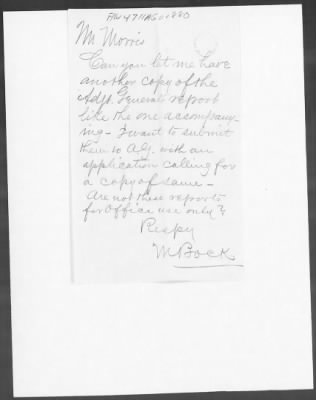 Mr Morris
Can you let me have
another copy of the
Adjt. General's report
like the one accompany-
ing - I want to submit
them to AG. with an
application calling for
a copy of same -
Are not these reports
for Office use only?
Respy
M Bock